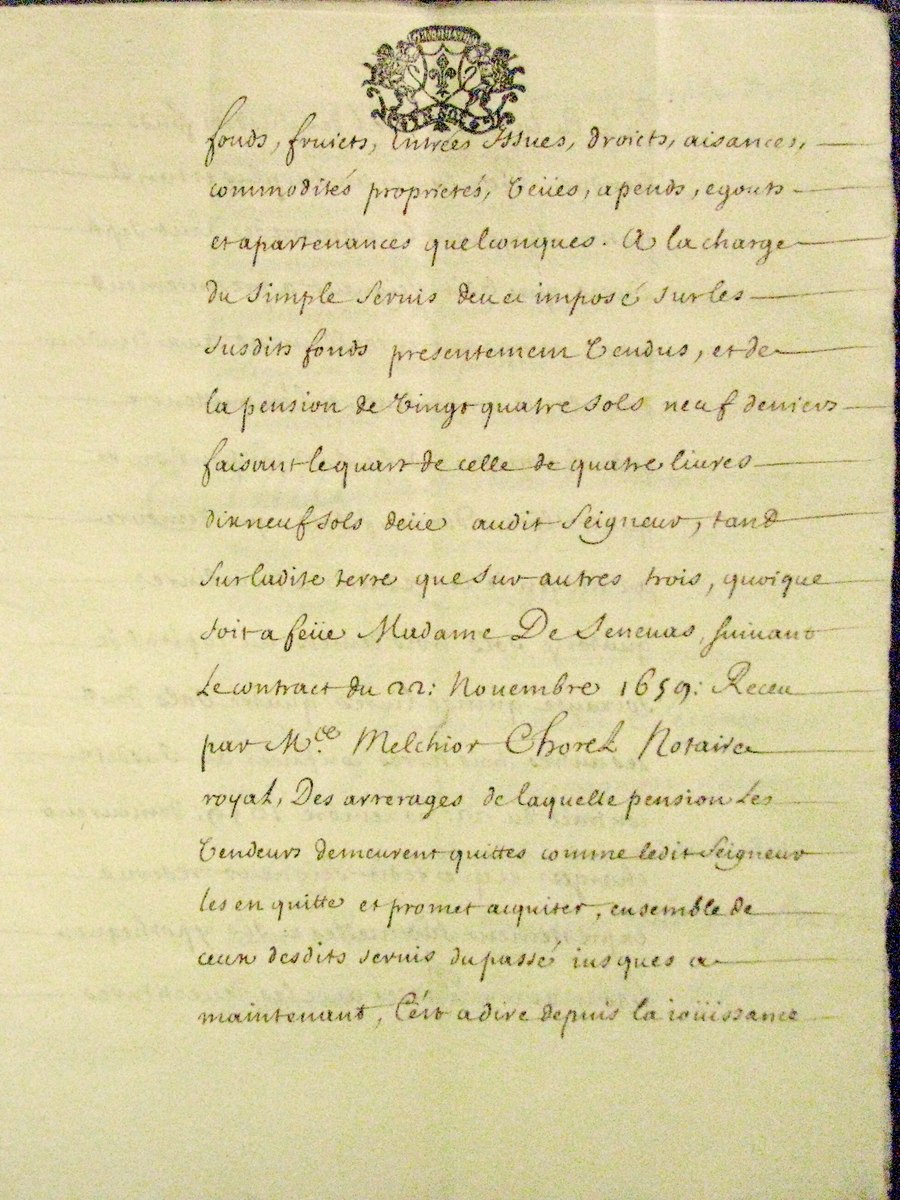 fonds, fruicts, Entrées Issues, droicts, aisances,
commodités proprietés, Veües, apends, egouts
et apartenances quelconques. A la charge
du simple servis deu et imposé sur les
susdits fonds presentement Vendus, et de
la pension de Vingt quatre sols neuf deniers
faisant le quart de celle de quatre liures
dix neuf sols deüe audit Seigneur, tand
sur ladite terre que sur autres trois, quoique
soit a feüe Madame De Seneuas, suiuant
Le contract du 22: Nouembre 1659: Receu
par M.e Melchior Chorel Notaire
royal, Des arrerages de laquelle pension Les
Vendeurs demeurent quittes comme ledit Seigneur
les en quitte et promet acquiter, ensemble de
ceux desdits seruis du passé iusques a
maintenant, C'ést a dire depuis la ioüissance